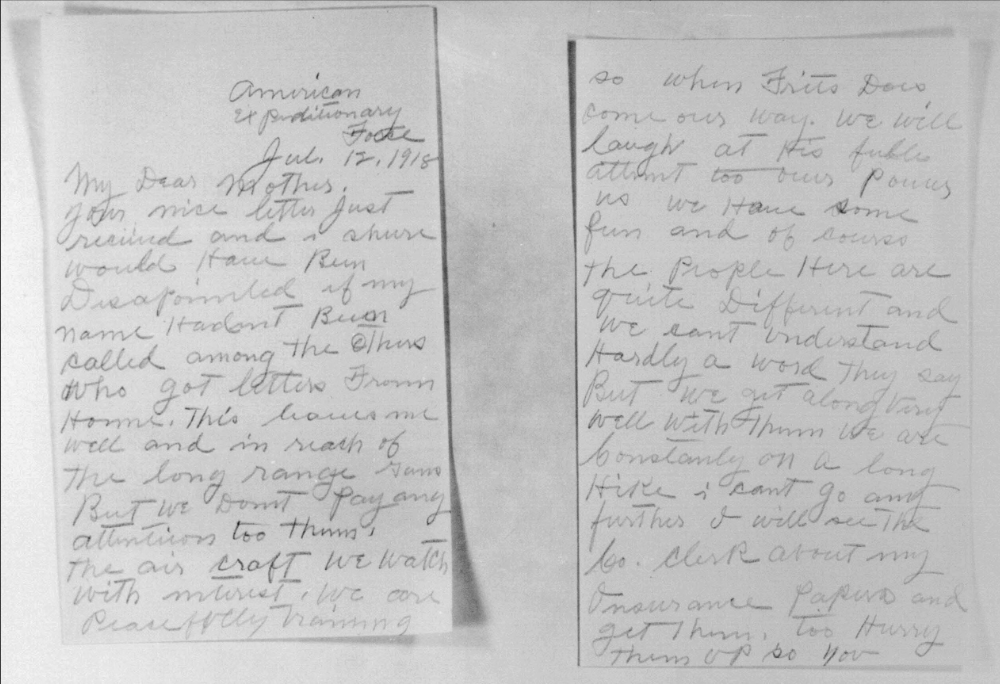 American
Expeditionary
Force
Jul. 12, 1918
My Dear Mother.
your nice letter Just
recieved and i shure
would Have Been
Disapointed if my
name Hadent Been
called among the others
who got letters From
Home. This leaves me
well and in reach of
the long range guns
But we Dont Pay any
attention too them.
the air craft we watch
with interest. we are
Peacefully Training
so when Frits Does
come our way. we will
laugh at His
attemt too our Powers
us we Have some
fun and of course
the People Here are
quite Different and
we cant understand
Hardly a word they say
But we get along very
well with them we are
Constantly on a long
Hike i cant go any
further I will see the
Co. clerk about my
Insurance Papers and
get them. too Hurry
them up so you